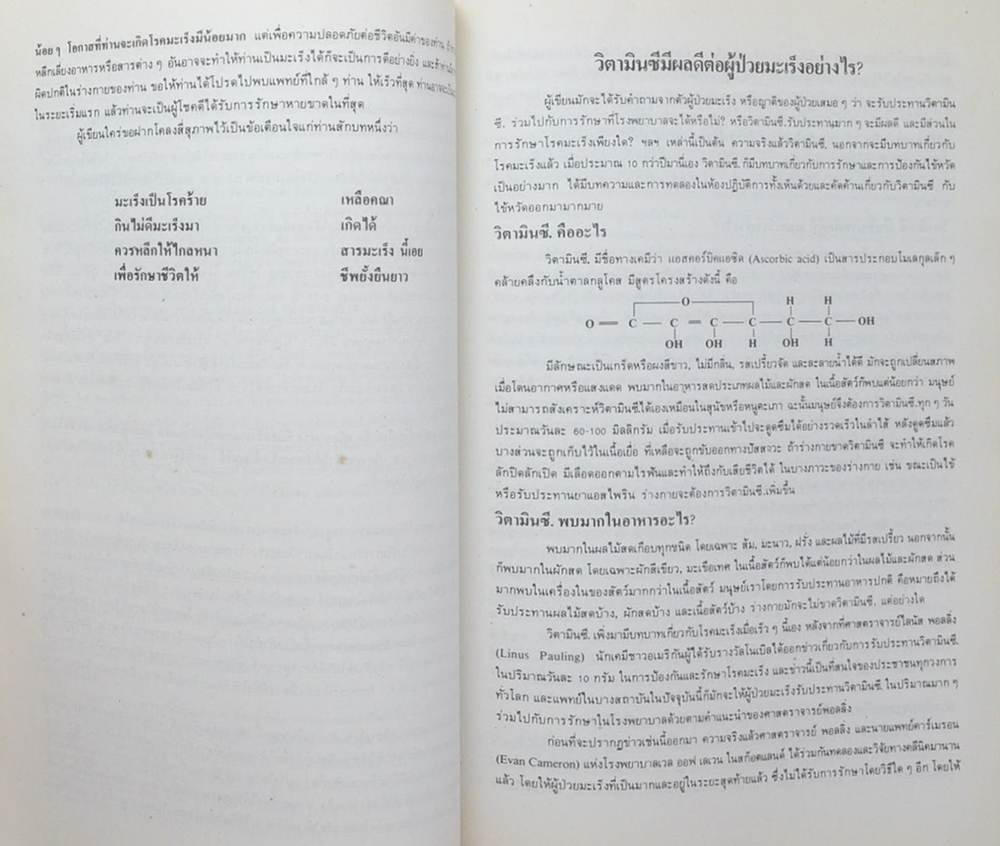 น้อย ๆ โอกาสที่ท่านจะเกิดโรคมะเร็งมีน้อยมาก แต่เพื่อความปลอดภัยต่อชีวิตอันมีค่าของท่าน
หลีกเลี่ยงอาหารหรือสารต่าง ๆ อันอาจจะทำให้ท่านเป็นมะเร็งได้ก็จะเป็นการดีอย่างยิ่ง และถ้า
ผิดปกติในร่างกายของท่าน ขอให้ท่านได้โปรดไปพบแพทย์ที่ใกล้ ๆ ท่าน ให้เร็วที่สุด ท่านอาจจะ
ในระยะเริ่มแรก แล้วท่านจะเป็นผู้โชคดีได้รับการรักษาหายขาดในที่สุด
ผู้เขียนใคร่ขอฝากโคลงสี่สุภาพไว้เป็นข้อเตือนใจแก่ท่านสักบทหนึ่งว่า
มะเร็งเป็นโรคร้าย เหลือคณา
กินไม่ดีมะเร็งมา เกิดได้
ควรหลีกให้ไกลหนา สารมะเร็ง นี้เอย
เพื่อรักษาชีวิตให้ ชีพยั้งยืนยาว
วิตามินซีมีผลดีต่อผู้ป่วยมะเร็งอย่างไร?
ผู้เขียนมักจะได้รับคำถามจากตัวผู้ป่วยมะเร็ง หรือญาติของผู้ป่วยเสมอ ๆ ว่า จะรับประทานวิตามิน
ซี. ร่วมไปกับการรักษาที่โรงพยาบาลจะได้หรือไม่? หรือวิตามินซี.รับประทานมาก ๆ จะมีผลดี และมีส่วนใน
การรักษาโรคมะเร็งเพียงใด? ฯลฯ เหล่านี้เป็นต้น ความจริงแล้ววิตามินซี. นอกจากจะมีบทบาทเกี่ยวกับ
โรคมะเร็งแล้ว เมื่อประมาณ 10 กว่าปีมานี่เอง วิตามินซี. ก็มีบทบาทเกี่ยวกับการรักษาและการป้องกันไข้หวัด
เป็นอย่างมาก ได้มีบทความและการทดลองในห้องปฏิบัติการทั้งเห็นด้วยและคัดค้านเกี่ยวกับวิตามินซี กับ
ไข้หวัดออกมามากมาย
วิตามินซี. คืออะไร
วิตามินซี. มีชื่อทางเคมีว่า แอสคอร์บิคแอซิด (Ascorbic acid) เป็นสารประกอบโมเลกุลเล็ก ๆ
คล้ายคลึงกับน้ำตาลกลูโคส มีสูตรโครงสร้างดังนี้ คือ
O H H
O = C — C = C — C — C — C — OH
OH OH H OH H
มีลักษณะเป็นเกร็ดหรือผงสีขาว, ไม่มีกลิ่น, รสเปรี้ยวจัด และละลายน้ำได้ดี มักจะถูกเปลี่ยนสภาพ
เมื่อโดนอากาศหรือแสงแดด พบมากในอาหารสดประเภทผลไม้และผักสด ในเนื้อสัตว์ก็พบแต่น้อยกว่า มนุษย์
ไม่สามารถสังเคราะห์วิตามินซีได้เองเหมือนในสุนัขหรือหนูตะเภา ฉะนั้นมนุษย์จึงต้องการวิตามินซี.ทุก ๆ วัน
ประมาณวันละ 60-100 มิลลิกรัม เมื่อรับประทานเข้าไปจะดูดซึมได้อย่างรวดเร็วในลำไส้ หลังดูดซึมแล้ว
บางส่วนจะถูกเก็บไว้ในเนื้อเยื่อ ที่เหลือจะถูกขับออกทางปัสสาวะ ถ้าร่างกายขาดวิตามินซี จะทำให้เกิดโรค
ลักปิดลักเปิด มีเลือดออกตามไรฟันและทำให้ถึงกับเสียชีวิตได้ ในบางภาวะของร่างกาย เช่น ขณะเป็นไข้
หรือรับประทานยาแอสไพริน ร่างกายจะต้องการวิตามินซี.เพิ่มขึ้น
วิตามินซี. พบมากในอาหารอะไร?
พบมากในผลไม้สดเกือบทุกชนิด โดยเฉพาะ ส้ม, มะนาว, ฝรั่ง และผลไม้ที่มีรสเปรี้ยว นอกจากนั้น
ก็พบมากในผักสด โดยเฉพาะผักสีเขียว, มะเขือเทศ ในเนื้อสัตว์ก็พบได้แต่น้อยกว่าในผลไม้และผักสด ส่วน
มากพบในเครื่องในของสัตว์มากกว่าในเนื้อสัตว์ มนุษย์เราโดยการรับประทานอาหารปกติ คือหมายถึงได้
รับประทานผลไม้สดบ้าง, ผักสดบ้าง และเนื้อสัตว์บ้าง ร่างกายมักจะไม่ขาดวิตามินซี. แต่อย่างใด
วิตามินซี. เพิ่งมามีบทบาทเกี่ยวกับโรคมะเร็งเมื่อเร็ว ๆ นี้เอง หลังจากที่ศาสตราจารย์ไลนัส พอลลิ่ง
(Linus Pauling) นักเคมีชาวอเมริกันผู้ได้รับรางวัลโนเบิลได้ออกข่าวเกี่ยวกับการรับประทานวิตามินซี.
ในปริมาณวันละ 10 กรัม ในการป้องกันและรักษาโรคมะเร็ง และข่าวนี้เป็นที่สนใจของประชาชนทุกวงการ
ทั่วโลก และแพทย์ในบางสถาบันในปัจจุบันนี้ก็มักจะให้ผู้ป่วยมะเร็งรับประทานวิตามินซี. ในปริมาณมาก ๆ
ร่วมไปกับการรักษาในโรงพยาบาลด้วยตามคำแนะนำของศาสตราจารย์พอลลิ่ง
ก่อนที่จะปรากฏข่าวเช่นนี้ออกมา ความจริงแล้วศาสตราจารย์ พอลลิ่ง และนายแพทย์คาร์เมรอน
(Evan Cameron) แห่งโรงพยาบาลเวล ออฟ เลเวน ในสก๊อตแลนด์ ได้ร่วมกันทดลองและวิจัยทางคลีนิคมานาน
แล้ว โดยให้ผู้ป่วยมะเร็งที่เป็นมากและอยู่ในระยะสุดท้ายแล้ว ซึ่งไม่ได้รับการรักษาโดยวิธีใด ๆ อีก โดยให้